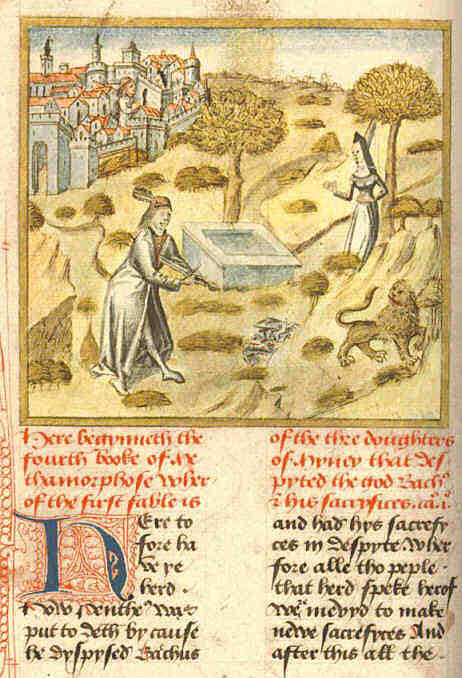 Here begynneth the
fourth booke of Me
thamorphose wher
of the first fable is
of the thre doughters
of Myney that des
pyted the god Bachꝰ
& his sacryfices. ca.º i.
HEre to
fore ha
ve ye
herd .
How Pentheꝰ was
put to deth by cause
he dyspysed Bachus
and had hys sacrefy
ces in despyte. Wher
fore alle tho peple .
that herd speke herof
weͬ mevyd to make
newe sacrefyces And
after this all the .